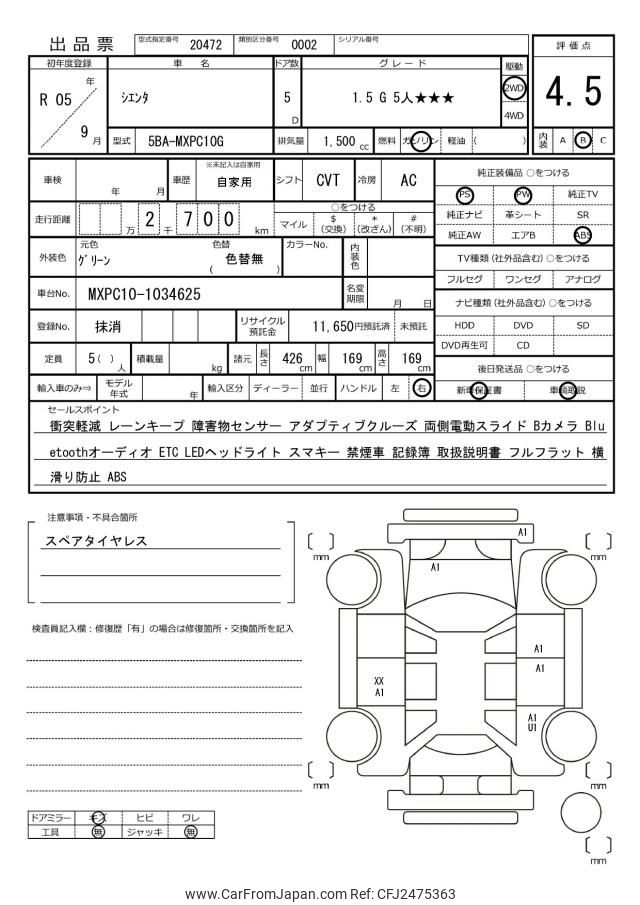 出品票 型式指定番号 20472 類別区分番号 0002 シリアル番号
評価点
4.5
内装 A B C
初年度登録 車名 ドア数 グレード 駆動
R 05 年 9 月
シエンタ
5 D
1.5 G 5人★★★
2WD
4WD
型式 5BA-MXPC10G 排気量 1,500 cc 燃料 ガソリン 軽油 ( )
車検 年 月 車歴 ※未記入は自家用 自家用 シフト CVT 冷房 AC
走行距離 万 2 千 7 0 0 km
○をつける
マイル $(交換) *(改ざん) #(不明)
外装色 元色 グリーン 色替 ( 色替無 ) カラーNo. 内装色
車台No. MXPC10-1034625 名変期限 月 日
登録No. 抹消 リサイクル預託金 11,650円預託済 未預託
定員 5( )人 積載量 kg 諸元 長さ 426cm 幅 169cm 高さ 169cm
輸入車のみ⇒ モデル年式 年 輸入区分 ディーラー 並行 ハンドル 左 右
純正装備品 ○をつける
PS PW 純正TV
純正ナビ 革シート SR
純正AW エアB ABS
TV種類(社外品含む) ○をつける
フルセグ ワンセグ アナログ
ナビ種類(社外品含む) ○をつける
HDD DVD SD
DVD再生可 CD
後日発送品 ○をつける
新車保証書 車輌取説
セールスポイント
衝突軽減 レーンキープ 障害物センサー アダプティブクルーズ 両側電動スライド Bカメラ Blu
etoothオーディオ ETC LEDヘッドライト スマキー 禁煙車 記録簿 取扱説明書 フルフラット 横
滑り防止 ABS
注意事項・不具合箇所
スペアタイヤレス
検査員記入欄:修復歴「有」の場合は修復箇所・交換箇所を記入
ドアミラー キズ ヒビ ワレ
工具 無 ジャッキ 無
mm
mm
A1
A1
A1
A1
XX
A1
A1
U1
mm
mm
mm
www.CarFromJapan.com Ref: CFJ2475363